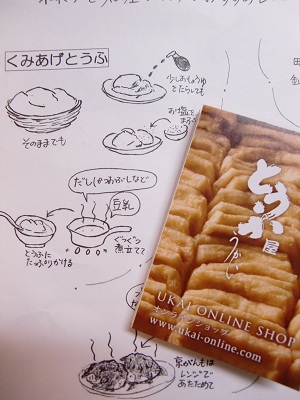 くみあげとうふ
少しおしょうゆ
でたらしても
お塩を
そのままでも
だし(かつおぶしなど)
豆乳
とうふに
たっぷりかける
ぐつぐつ
煮立てて
京がんもは
レンジで
あたためて
とうふ屋
うかい
UKAI ONLINE SHOP
オンラインショップ
www.ukai-online.com